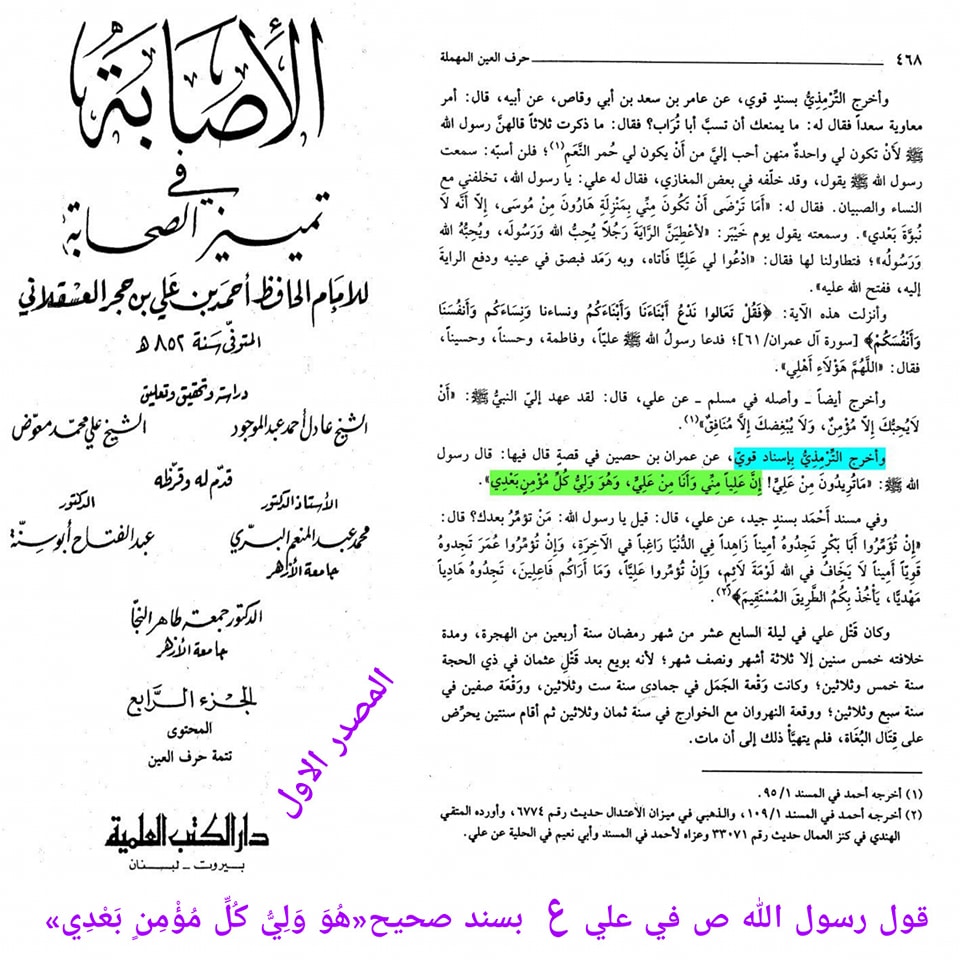 الأصابة
في
تمييز الصحابة
للإمام الحافظ أحمد بن علي بن حجر العسقلاني
المتوفى سنة ٨٥٢ هـ
دراسة وتحقيق وتعليق
الشيخ عادل أحمد عبد الموجود الشيخ علي محمد معوض
قدم له وقرظه
الأستاذ الدكتور الدكتور
محمد عبد المنعم البري عبد الفتاح أبو سنة
جامعة الأزهر
الدكتور جمعة طاهر النجا
جامعة الأزهر
الجزء الرابع
المحتوى
تتمة حرف العين
دار الكتب العلمية
بيروت - لبنان
المصدر الاول
٤٦٨ حرف العين المهملة
وأخرج التِّرْمِذِيُّ بسندٍ قوي، عن عامر بن سعد بن أبي وقاص، عن أبيه، قال: أمر
معاوية سعداً فقال له: ما يمنعك أن تسبَّ أبا تُرَاب؟ فقال: ما ذكرت ثلاثاً قالهنَّ رسول الله
ﷺ لَأنْ تكون لي واحدةٌ منهن أحب إليَّ من أَنْ يكون لي حُمر النَّعَمِ(١)؛ فلن أسبّه: سمعت
رسول الله ﷺ يقول، وقد خلّفه في بعض المغازي، فقال له علي: يا رسول الله، تخلفني مع
النساء والصبيان. فقال له: «أَمَا تَرْضَى أَنْ تَكُونَ مِنِّي بِمَنْزِلَةِ هَارُونَ مِنْ مُوسَى، إِلاَّ أَنَّهُ لَا
نُبُوَّةَ بَعْدي». وسمعته يقول يوم خَيْبَر: «لأُعْطِيَنَّ الرَّايَةَ رَجُلًا يُحِبُّ الله وَرَسُولَه، ويُحِبُّهُ الله
وَرَسُولُه»؛ فتطاولنا لها فقال: «ادْعُوا لي عَلِيًّا فأتاه، وبه رَمَد فبصق في عينيه ودفع الراية
إليه، ففتح الله عليه».
وأنزلت هذه الآية: ﴿فَقُلْ تَعَالَوا نَدْعُ أَبْنَاءَنَا وَأَبْنَاءَكُمُ ونساءنا وَنِسَاءَكُم وَأَنْفُسَنَا
وَأَنْفُسَكُمْ﴾ [سورة آل عمران/ ٦١]؛ فدعا رسولُ الله ﷺ عليّاً، وفاطمة، وحسناً، وحسيناً،
فقال: «اللَّهُمَّ هَؤُلَاءِ أَهْلِي».
وأخرج أيضاً ـ وأصله في مسلم ـ عن علي، قال: لقد عهد إليّ النبيُّ ﷺ: «أَنْ
لَا يُحِبُّكَ إِلاَّ مُؤْمِنٌ، وَلَا يُبْغِضكَ إِلاَّ مُنَافِقٌ»(١).
وأخرج التِّرْمِذِيُّ بإسناد قويّ، عن عمران بن حصين في قصةٍ قال فيها: قال رسول
الله ﷺ: «مَا تُرِيدُونَ مِنْ عَلِيٍّ! إنَّ عَلِياً مِنِّي وَأَنَا مِنْ عَلِيٍّ، وَهْوَ وَلِيُّ كُلِّ مُؤْمِنٍ بَعْدِي».
وفي مسند أَحْمَد بسندٍ جيد، عن علي، قال: قيل يا رسول الله: مَنْ تؤمِّرُ بعدك؟ قال:
«إِنْ تُؤَمِّرُوا أَبَا بَكْرٍ تَجِدُوهُ أميناً زَاهِداً فِي الدُّنْيَا رَاغِباً فِي الآخِرَةِ، وَإِنْ تُؤَمِّرُوا عُمَرَ تَجِدوهُ
قَوِيّاً أَمِيناً لَا يَخَافُ في الله لَوْمَةَ لَائِمٍ، وَإِنْ تُؤَمِّروا عَلِيًّا، وَمَا أَرَاكُم فَاعِلِينَ، تَجِدُوهُ هَادِياً
مَهْدِيًّا، يَأْخُذ بِكُمُ الطَّرِيقَ المُسْتَقِيمَ﴾(٢).
وكان قَتْل علي في ليلة السابع عشر من شهر رمضان سنة أربعين من الهجرة، ومدة
خلافته خمس سنين إلا ثلاثة أشهر ونصف شهر؛ لأنه بويع بعد قَتْلِ عثمان في ذي الحجة
سنة خمس وثلاثين؛ وكانت وَقْعة الجَمَل في جمادى سنة ست وثلاثين، ووَقْعَة صفين في
سنة سبع وثلاثين؛ ووقعة النهروان مع الخوارج في سنة ثمان وثلاثين ثم أقام سنتين يحرِّض
على قِتَال البُغَاة، فلم يتهيَّأ ذلك إلى أن مات.
(١) أخرجه أحمد في المسند ١/ ٩٥.
(٢) أخرجه أحمد في المسند ١/ ١٠٩، والذهبي في ميزان الاعتدال حديث رقم ٦٧٧٤، وأورده المتقي
الهندي في كنز العمال حديث رقم ٣٣٠٧١ وعزاه لأحمد في المسند وأبي نعيم في الحلية عن علي.
قول رسول الله ص في علي ع بسند صحيح «هُوَ وَلِيُّ كُلِّ مُؤْمِنٍ بَعْدِي»